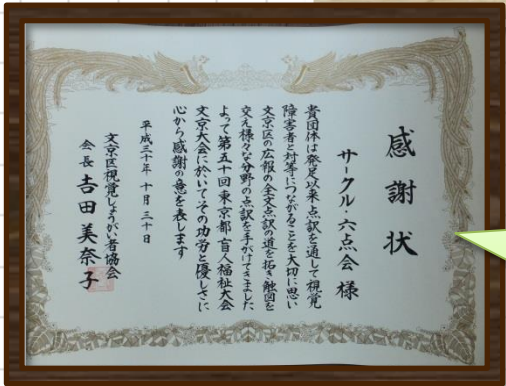 感謝状
サークル・六点会 様
貴団体は発足以来点訳を通して視覚
障害者と対等につながることを大切に思い
文京区の広報の全文点訳の道を拓き触図を
交え様々な分野の点訳を手がけてきました
よって第五十回東京都盲人福祉大会
文京大会に於いてその功労と優しさに
心から感謝の意を表します
平成三十年 十月 三十日
文京区視覚しょうがい者協会
会長 吉田美奈子